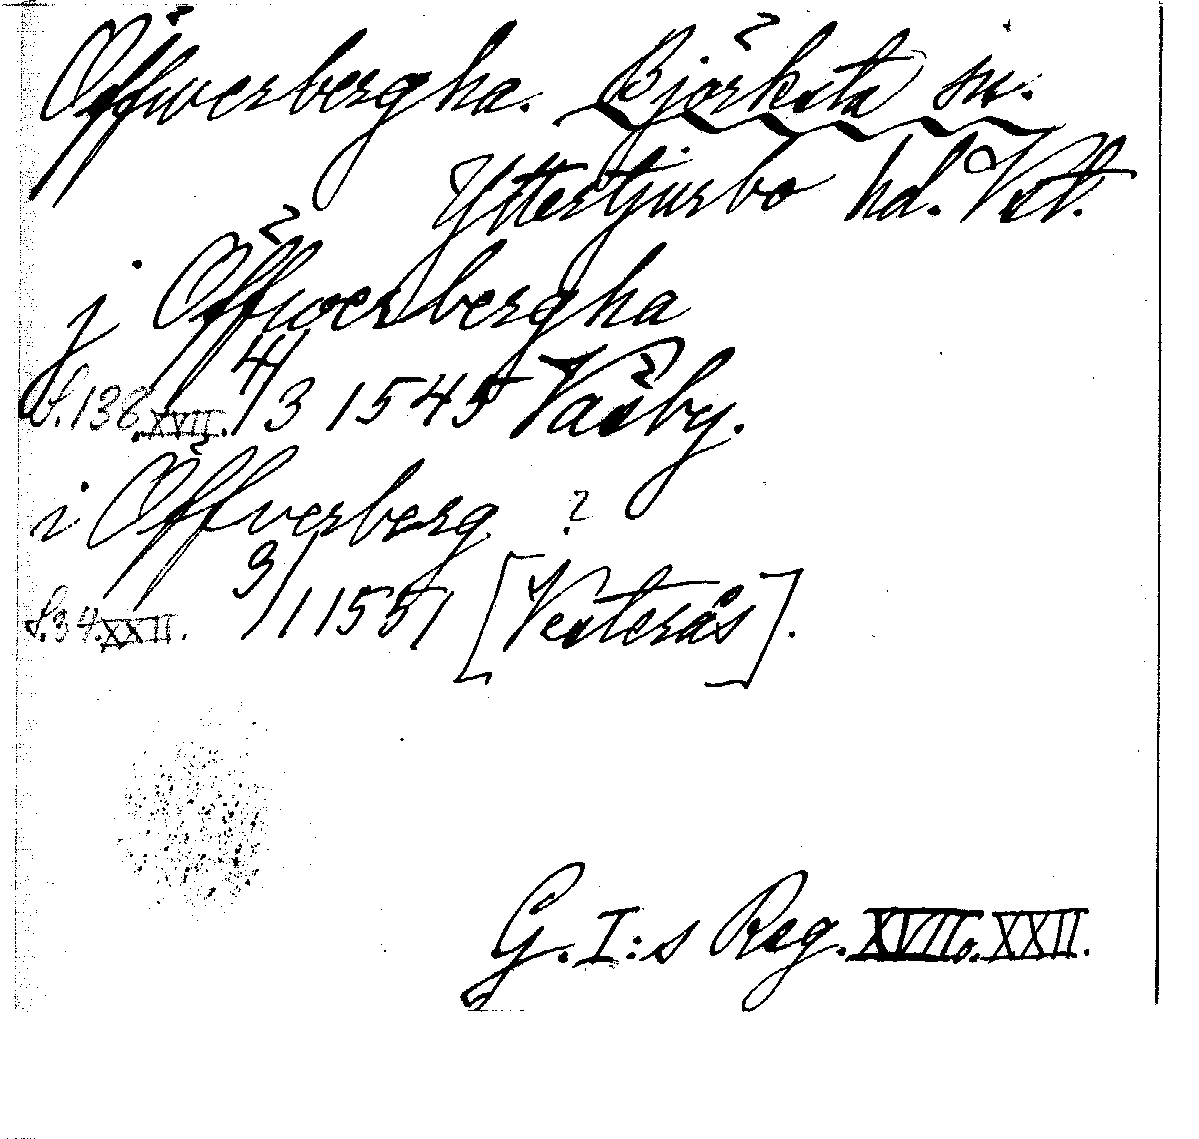 Öffwerbergha. Björksta sn.
Yttertjurbo hd. Vstl.
j Öffwerbergha
S. 138. XVII. 4/3 1545 Vaésby.
i Öffverberg ?
S. 34. XXII. 9/1 1551 [Vesterås].
G. I:s Reg. XVII o. XXII.